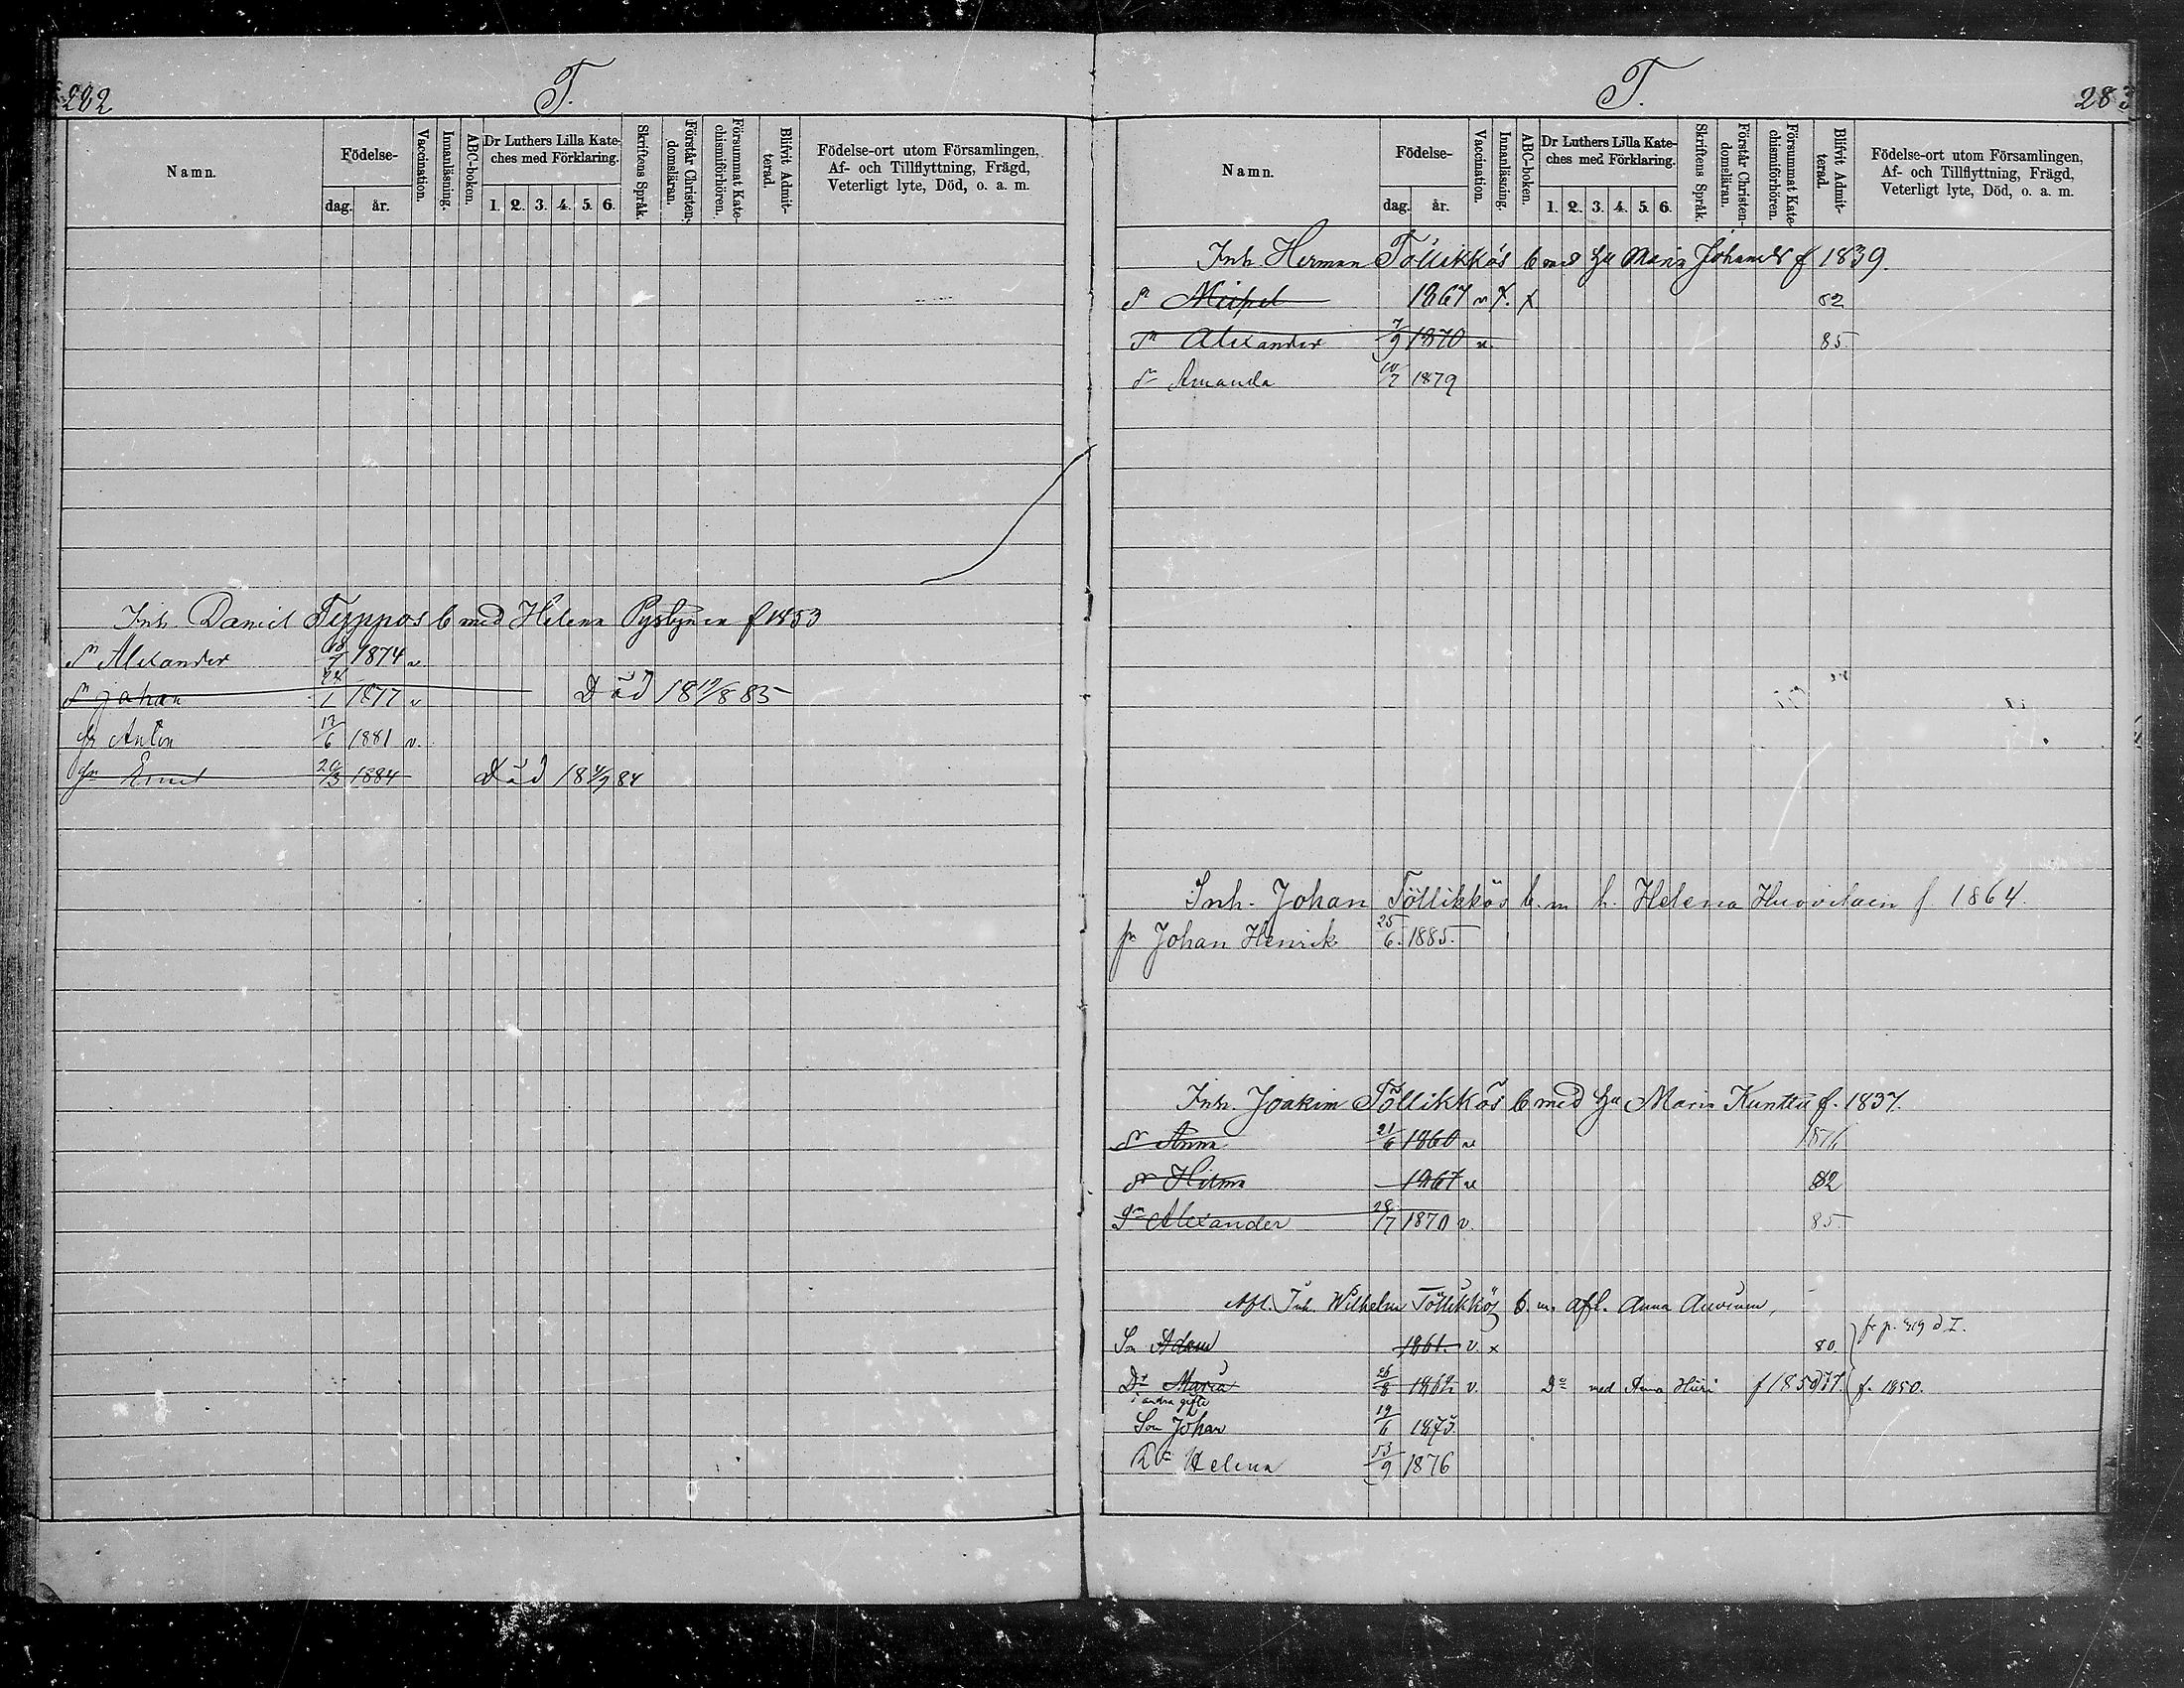 282
T.
Namn.
Födelse-
dag.
år.
Vaccination.
Innanläsning.
ABC-boken.
Dr Luthers Lilla Kate-
ches med Förklaring.
1. 2. 3. 4. 5. 6.
Skriftens Språk.
Förstår Christen-
domsläran.
Försummat Kate-
chismiförhören.
Blifvit Admit-
terad.
Födelse-ort utom Församlingen,
Af- och Tillflyttning, Frägd,
Veterligt lyte, Död, o. a. m.
Inh. Daniel Teppos b med Helena f 1853
Sn Alexander 1874 v
Sn Johan 24/1 1877 v Död 18 19/8 83
Sn Anton 17/6 1881 v.
Sn Emil 20/3 1884 Död 18 4/9 84
T.
283
Namn.
Födelse-
dag.
år.
Vaccination.
Innanläsning.
ABC-boken.
Dr Luthers Lilla Kate-
ches med Förklaring.
1. 2. 3. 4. 5. 6.
Skriftens Språk.
Förstår Christen-
domsläran.
Försummat Kate-
chismiförhören.
Blifvit Admit-
terad.
Födelse-ort utom Församlingen,
Af- och Tillflyttning, Frägd,
Veterligt lyte, Död, o. a. m.
Inh. Herman Töllikkös b med hu Maria f 1839.
1867 v x. x 82
Sn Alexander 7/9 1870 v. 85
Dr Amanda 10/7 1879
Inh. Johan Töllikkös b. m h. Helena Huovilain f. 1864.
Sn Johan Henrik 25/6. 1885.
Inh. Joakim Töllikkös b med hu Maria Kunttu f. 1837.
Dr Anna 21/6 1860 v
Dr Hilma 1867 v 82
Sn Alexander 28/7 1870 v. 85
Afl. Inh. Wilhelm Töllikkös b. m. afl. Anna Auvinen,
Son Adam 1861. v. x 80.
Dr Maria 26/8 1862 v. Do med Anna Hiiri f. 1850.
i andra gifte
Son Johan 19/6 1873
Dr Helena 13/9 1876